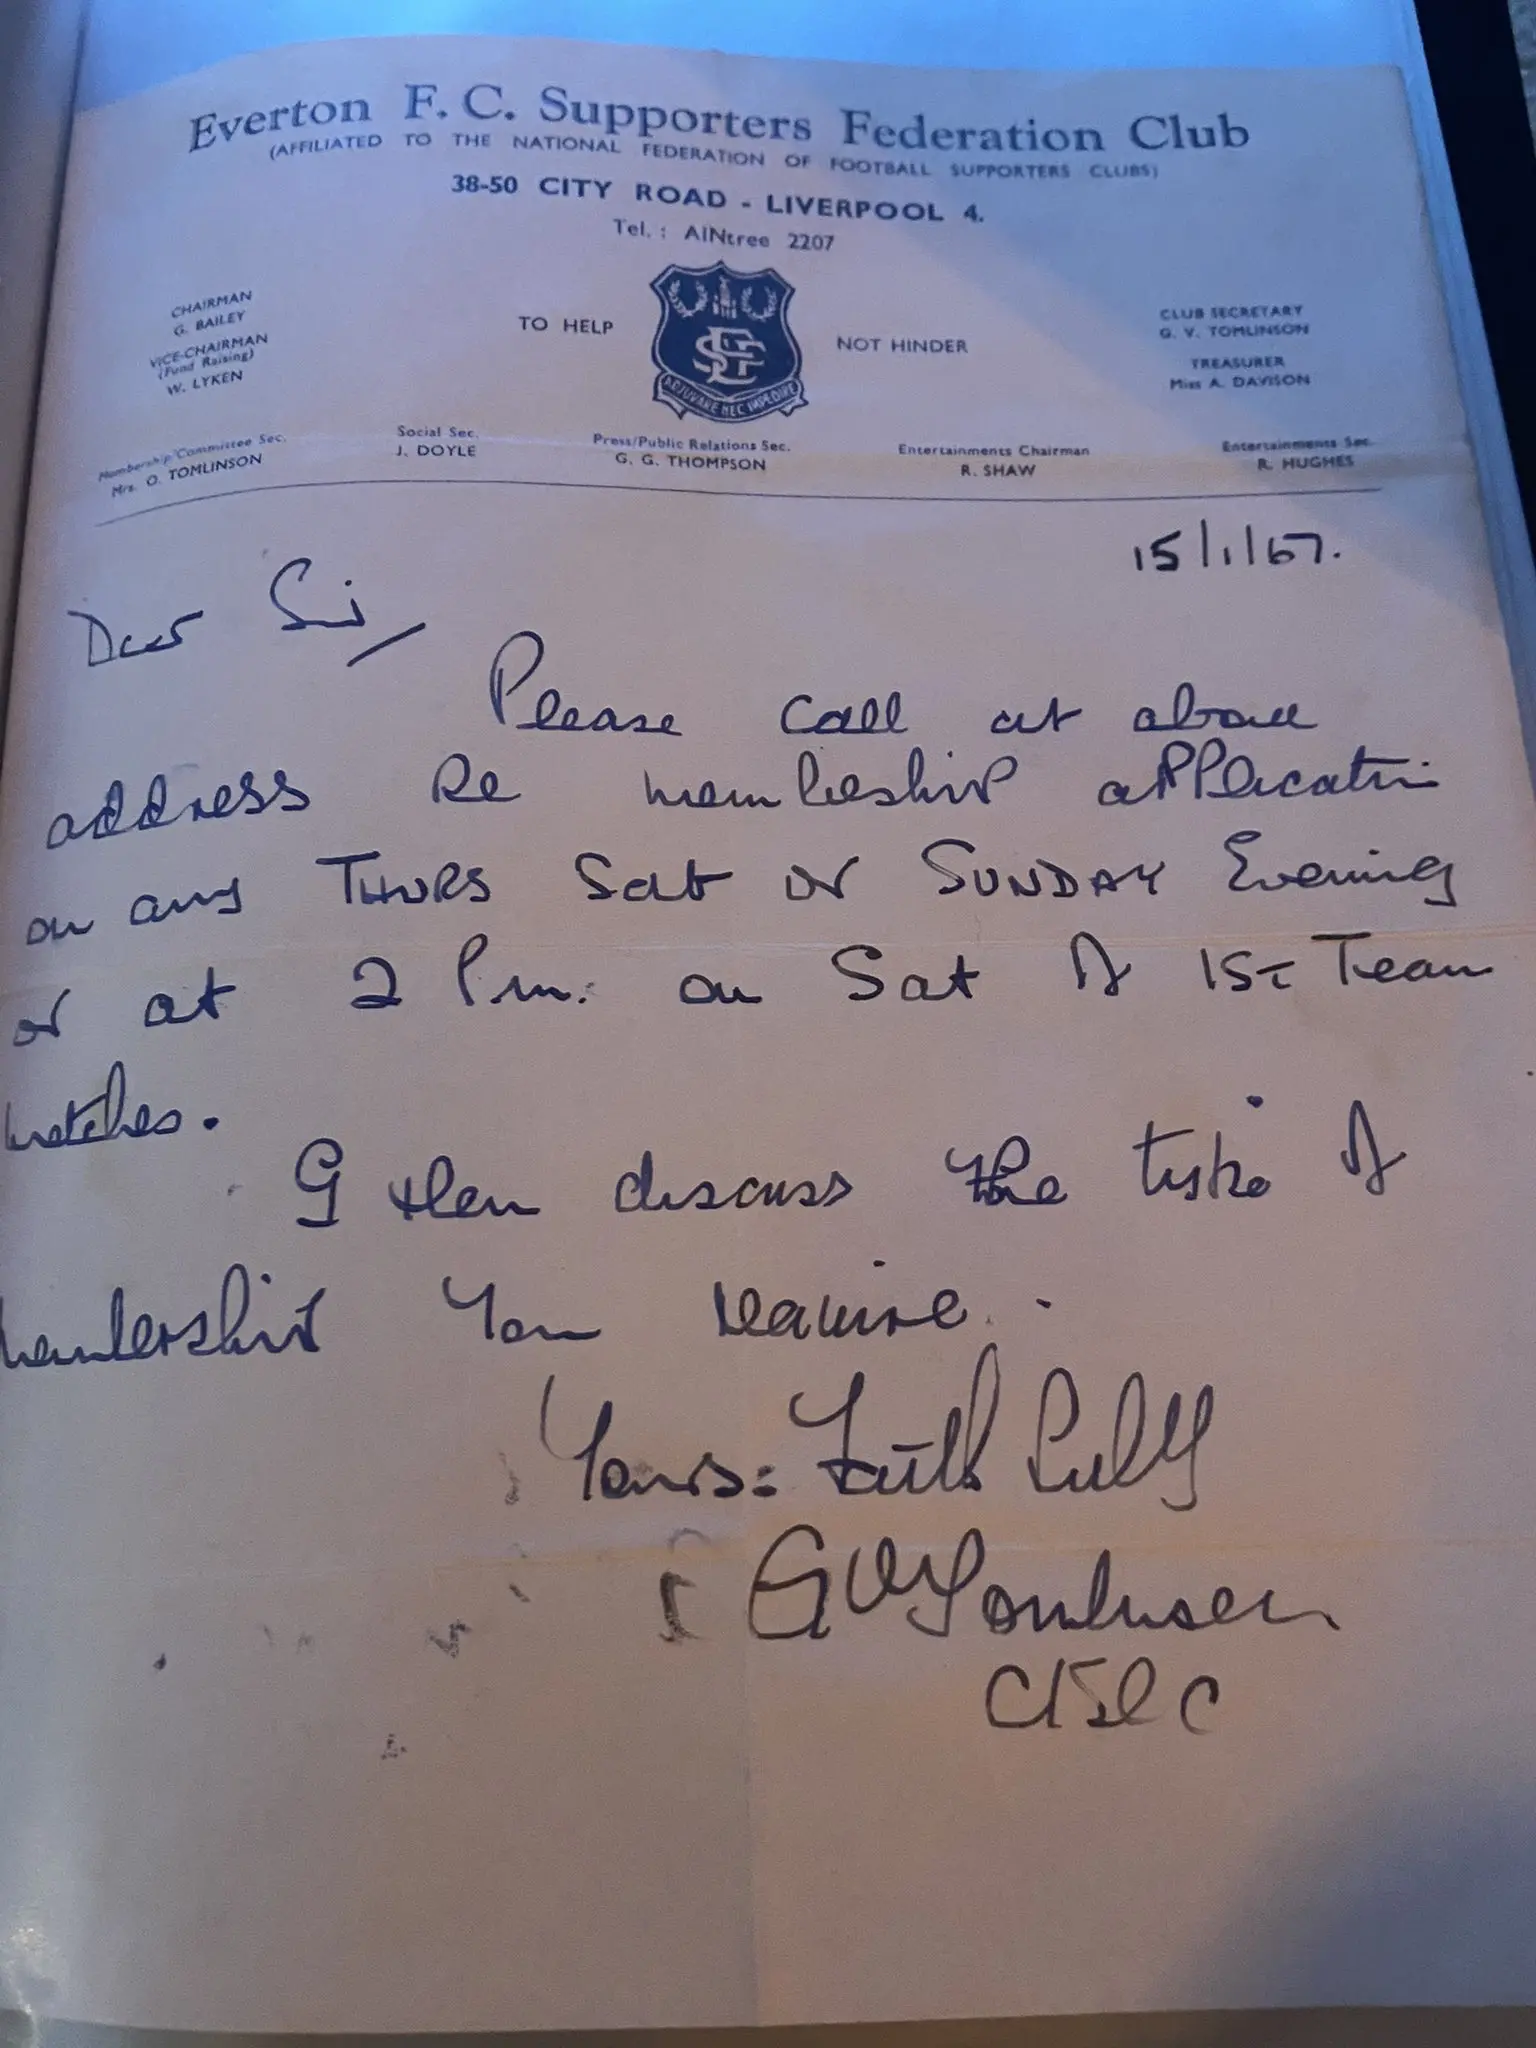 Everton F. C. Supporters Federation Club
(AFFILIATED TO THE NATIONAL FEDERATION OF FOOTBALL SUPPORTERS CLUBS)
38-50 CITY ROAD - LIVERPOOL 4.
Tel. : AINtree 2207
CHAIRMAN
G. BAILEY
VICE-CHAIRMAN
(Fund Raising)
W. LYKEN
TO HELP
NOT HINDER
ADJUVARE NEC IMPEDIRE
CLUB SECRETARY
G. V. TOMLINSON
TREASURER
Miss A. DAVISON
Membership/Committee Sec.
Mrs. O. TOMLINSON
Social Sec.
J. DOYLE
Press/Public Relations Sec.
G. G. THOMPSON
Entertainments Chairman
R. SHAW
Entertainments Sec.
R. HUGHES
15/1/67.
Dear Sir,
Please call at above
address Re membership application
on any THURS Sat or SUNDAY Evening
or at 2 Pm. on Sat of 1st Team
matches.
then discuss the of
membership you require.
Yours: Faithfully
G V Tomlinson
C/Sec